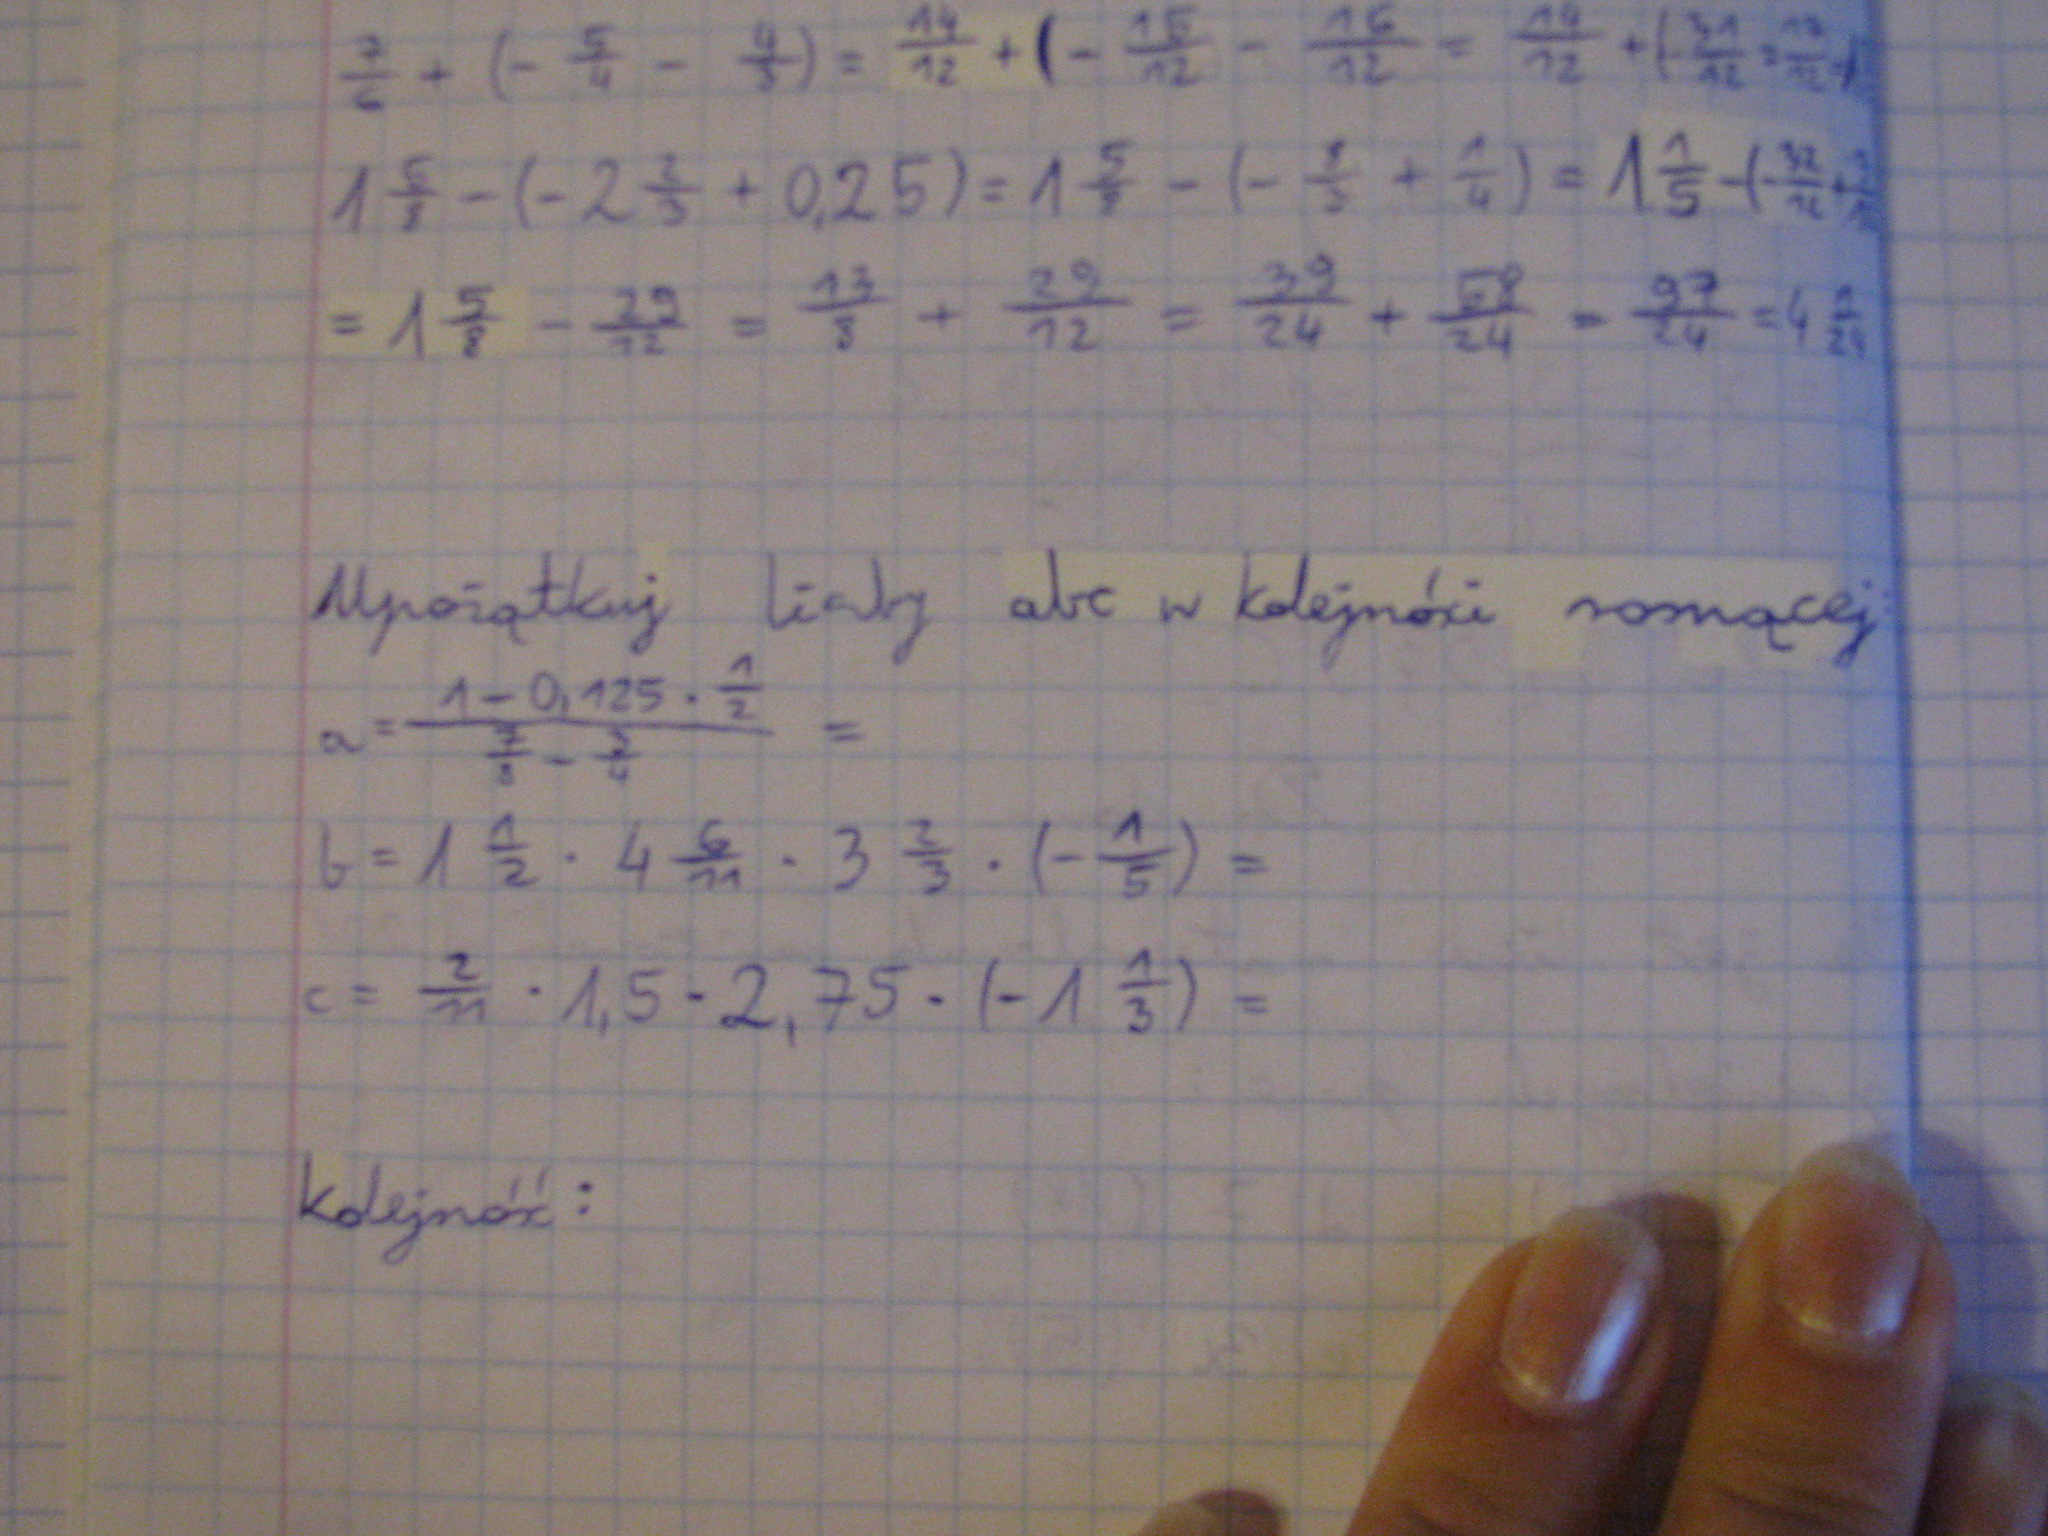 7/6 + (- 5/4 - 4/3) = 14/12 + (- 15/12 - 16/12 = 14/12 + (- 31/12 = 17/12
1 5/8 - (-2 2/3 + 0,25) = 1 5/8 - (- 8/3 + 1/4) = 1 1/5 - (- 32/12 +
= 1 5/8 - 29/12 = 13/8 + 29/12 = 39/24 + 58/24 = 97/24 = 4 1/24
Upożątkuj liczby abc w kolejnóści rosnącej:
a = (1 - 0,125 · 1/2) / (7/8 - 3/4) =
b = 1 1/2 · 4 6/11 · 3 2/3 · (- 1/5) =
c = 2/11 · 1,5 · 2,75 · (-1 1/3) =
kolejnóść: